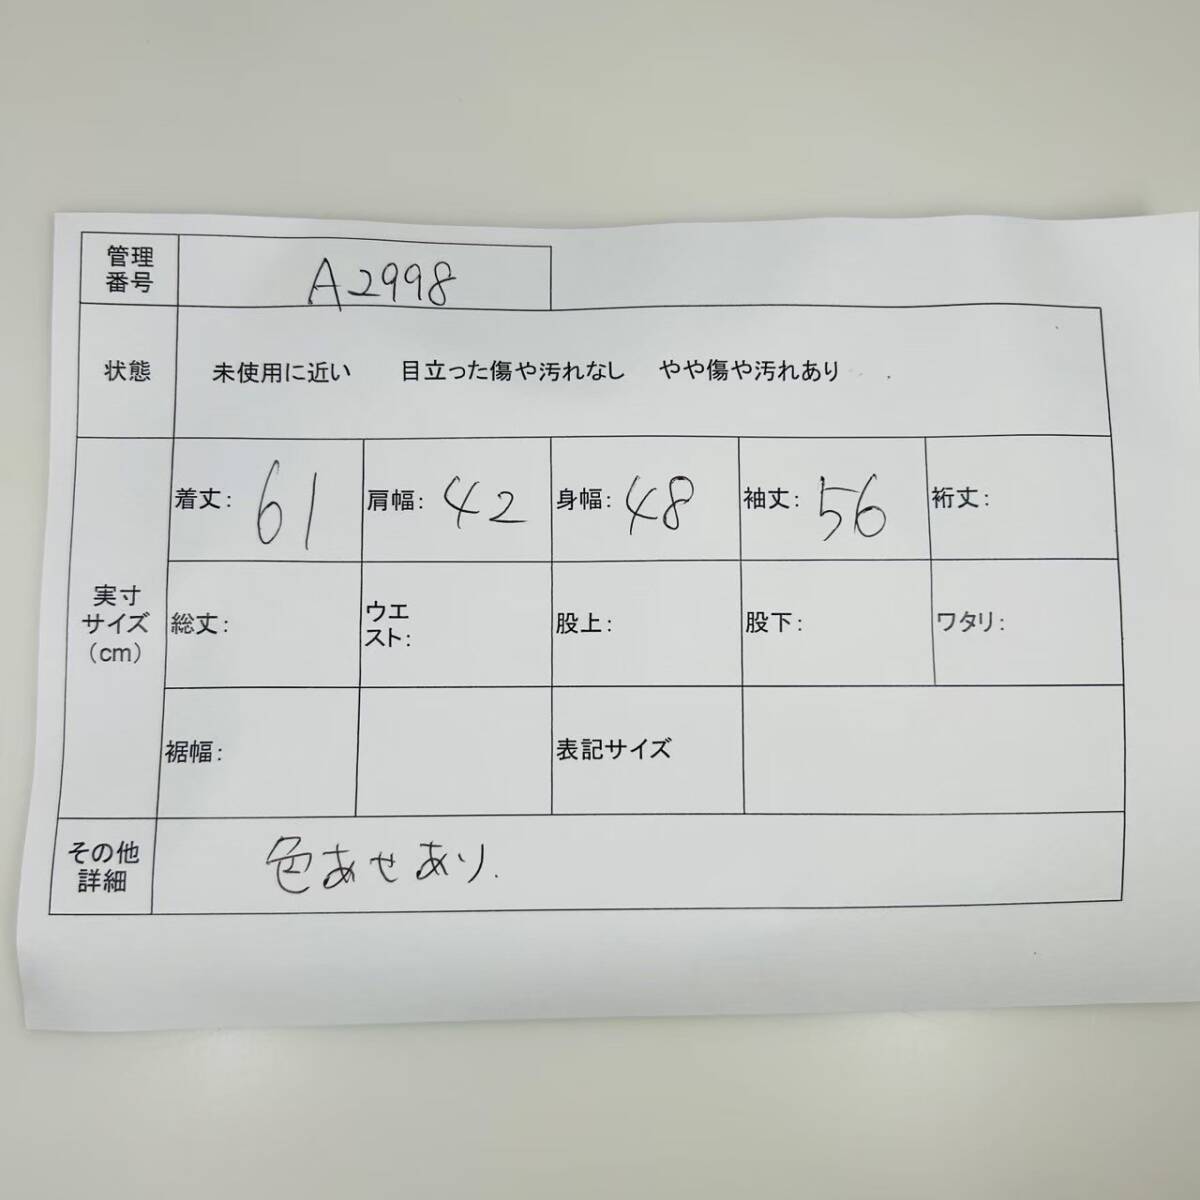 管理
番号
A2998
状態
未使用に近い 目立った傷や汚れなし やや傷や汚れあり
実寸
サイズ
(cm)
着丈: 61
肩幅: 42
身幅: 48
袖丈: 56
裄丈:
総丈:
ウエ
スト:
股上:
股下:
ワタリ:
裾幅:
表記サイズ
その他
詳細
色あせあり.